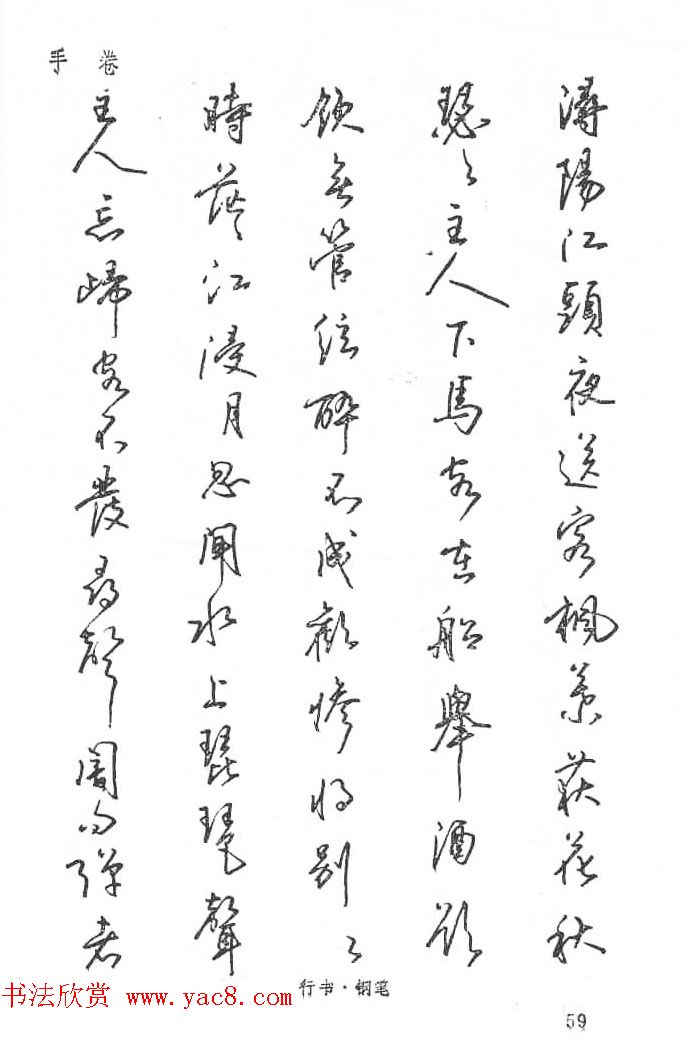 手卷
潯陽江頭夜送客楓葉荻花秋
瑟々主人下馬客在船舉酒欲
飲無管絃醉不成歡慘將別々
時茫々江浸月忽聞水上琵琶聲
主人忘歸客不發尋聲闇問彈者
行书·钢笔
书法欣赏 www.yac8.com
59